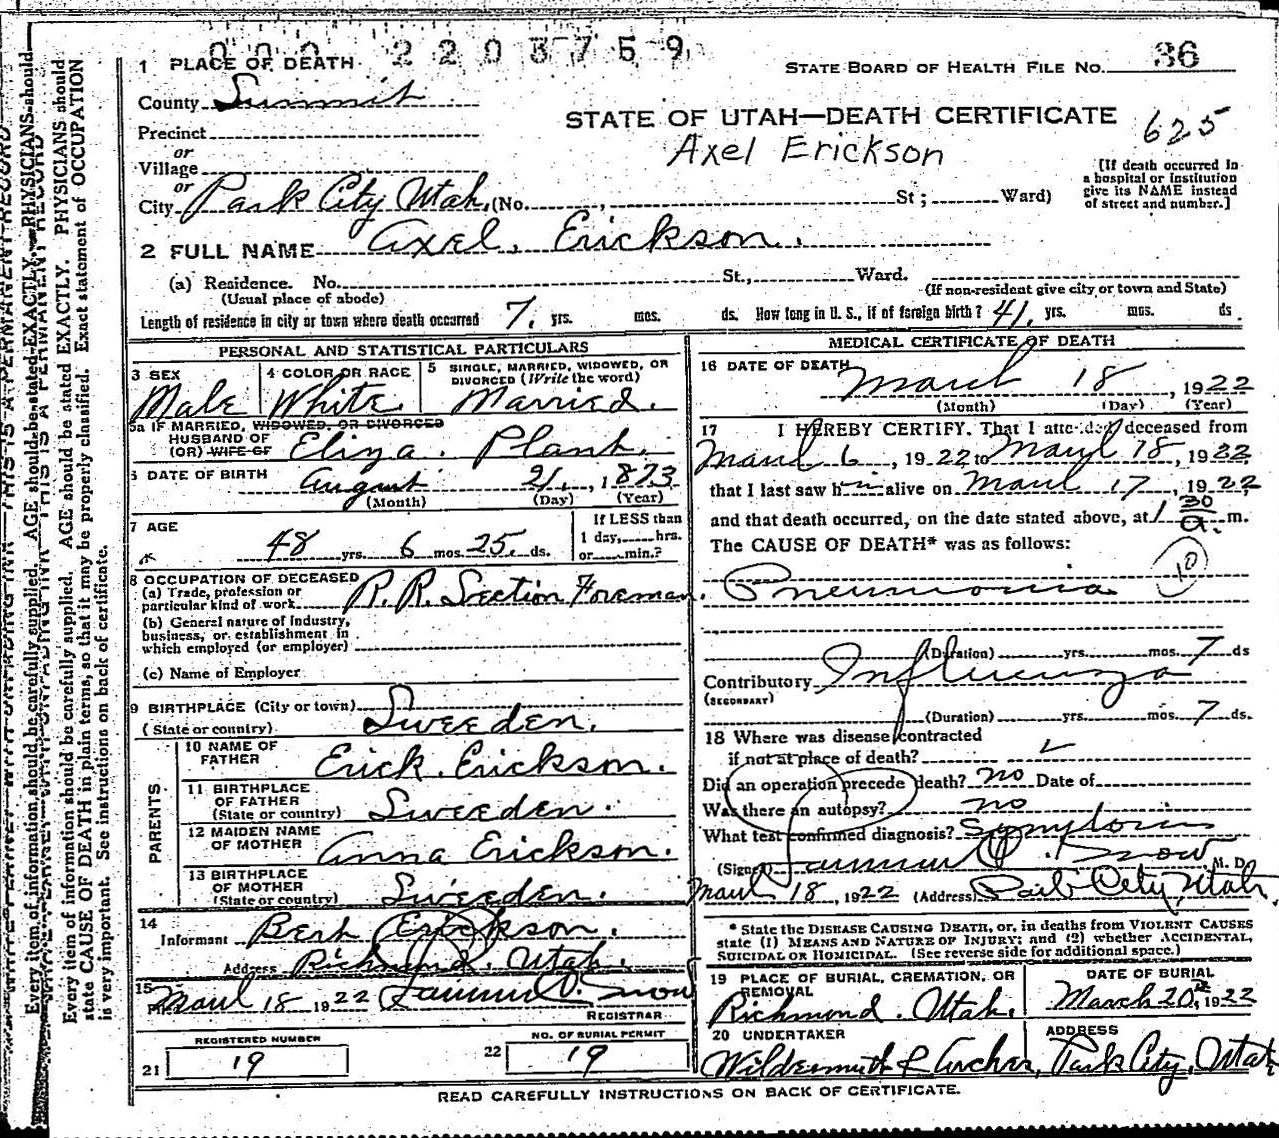 000 2203759
1 PLACE OF DEATH
STATE BOARD OF HEALTH FILE NO. 36
County Summit
STATE OF UTAH—DEATH CERTIFICATE
625
Precinct
Axel Erickson
or
Village
or
City Park City Utah. (No. , St; Ward)
[If death occurred in
a hospital or institution
give its NAME instead
of street and number.]
2 FULL NAME Axel. Erickson.
(a) Residence. No. St., Ward.
(Usual place of abode)
(If non-resident give city or town and State)
Length of residence in city or town where death occurred 7. yrs. mos. ds. How long in U. S., if of foreign birth? 41. yrs. mos. ds.
PERSONAL AND STATISTICAL PARTICULARS
3 SEX
Male
4 COLOR OR RACE
White.
5 SINGLE, MARRIED, WIDOWED, OR
DIVORCED (Write the word)
Married.
5a IF MARRIED, WIDOWED, OR DIVORCED
HUSBAND OF
(OR) WIFE OF Eliza. Plant.
6 DATE OF BIRTH August 21., 1873
(Month) (Day) (Year)
7 AGE
48 yrs. 6 mos. 25. ds.
If LESS than
1 day, hrs.
or min.?
8 OCCUPATION OF DECEASED
(a) Trade, profession or
particular kind of work R. R. Section Foreman.
(b) General nature of industry,
business, or establishment in
which employed (or employer)
(c) Name of Employer
9 BIRTHPLACE (City or town)
(State or country) Sweeden.
PARENTS
10 NAME OF
FATHER Erick. Erickson.
11 BIRTHPLACE
OF FATHER
(State or country) Sweeden.
12 MAIDEN NAME
OF MOTHER Anna Erickson.
13 BIRTHPLACE
OF MOTHER
(State or country) Sweeden.
14
Informant Bert Erickson.
Address Richmond. Utah.
15
March 18 1922 Samuel O. Snow
REGISTRAR
REGISTERED NUMBER
21 19
NO. OF BURIAL PERMIT
22 19
MEDICAL CERTIFICATE OF DEATH
16 DATE OF DEATH
March 18, 1922
(Month) (Day) (Year)
17 I HEREBY CERTIFY, That I attended deceased from
March 6, 1922 to March 18, 1922
that I last saw him alive on March 17, 1922
and that death occurred, on the date stated above, at 1 30 a. m.
The CAUSE OF DEATH* was as follows:
10
Pneumonia
(Duration) yrs. mos. 7 ds
Contributory Influenza
(SECONDARY)
(Duration) yrs. mos. 7 ds.
18 Where was disease contracted
if not at place of death?
Did an operation precede death? no Date of
Was there an autopsy? no
What test confirmed diagnosis? Symptoms
(Signed) Samuel O. Snow M. D.
March 18, 1922 (Address) Park City, Utah.
* State the DISEASE CAUSING DEATH, or, in deaths from VIOLENT CAUSES
state (1) MEANS AND NATURE OF INJURY; and (2) whether ACCIDENTAL,
SUICIDAL OR HOMICIDAL. (See reverse side for additional space.)
19 PLACE OF BURIAL, CREMATION, OR
REMOVAL
Richmond. Utah.
DATE OF BURIAL
March 20th, 1922
20 UNDERTAKER
Wildermuth & Archer,
ADDRESS
Park City, Utah
READ CAREFULLY INSTRUCTIONS ON BACK OF CERTIFICATE.
Every item of information should be carefully supplied. AGE should be stated EXACTLY. PHYSICIANS should
state CAUSE OF DEATH in plain terms, so that it may be properly classified. Exact statement of OCCUPATION
is very important. See instructions on back of certificate.